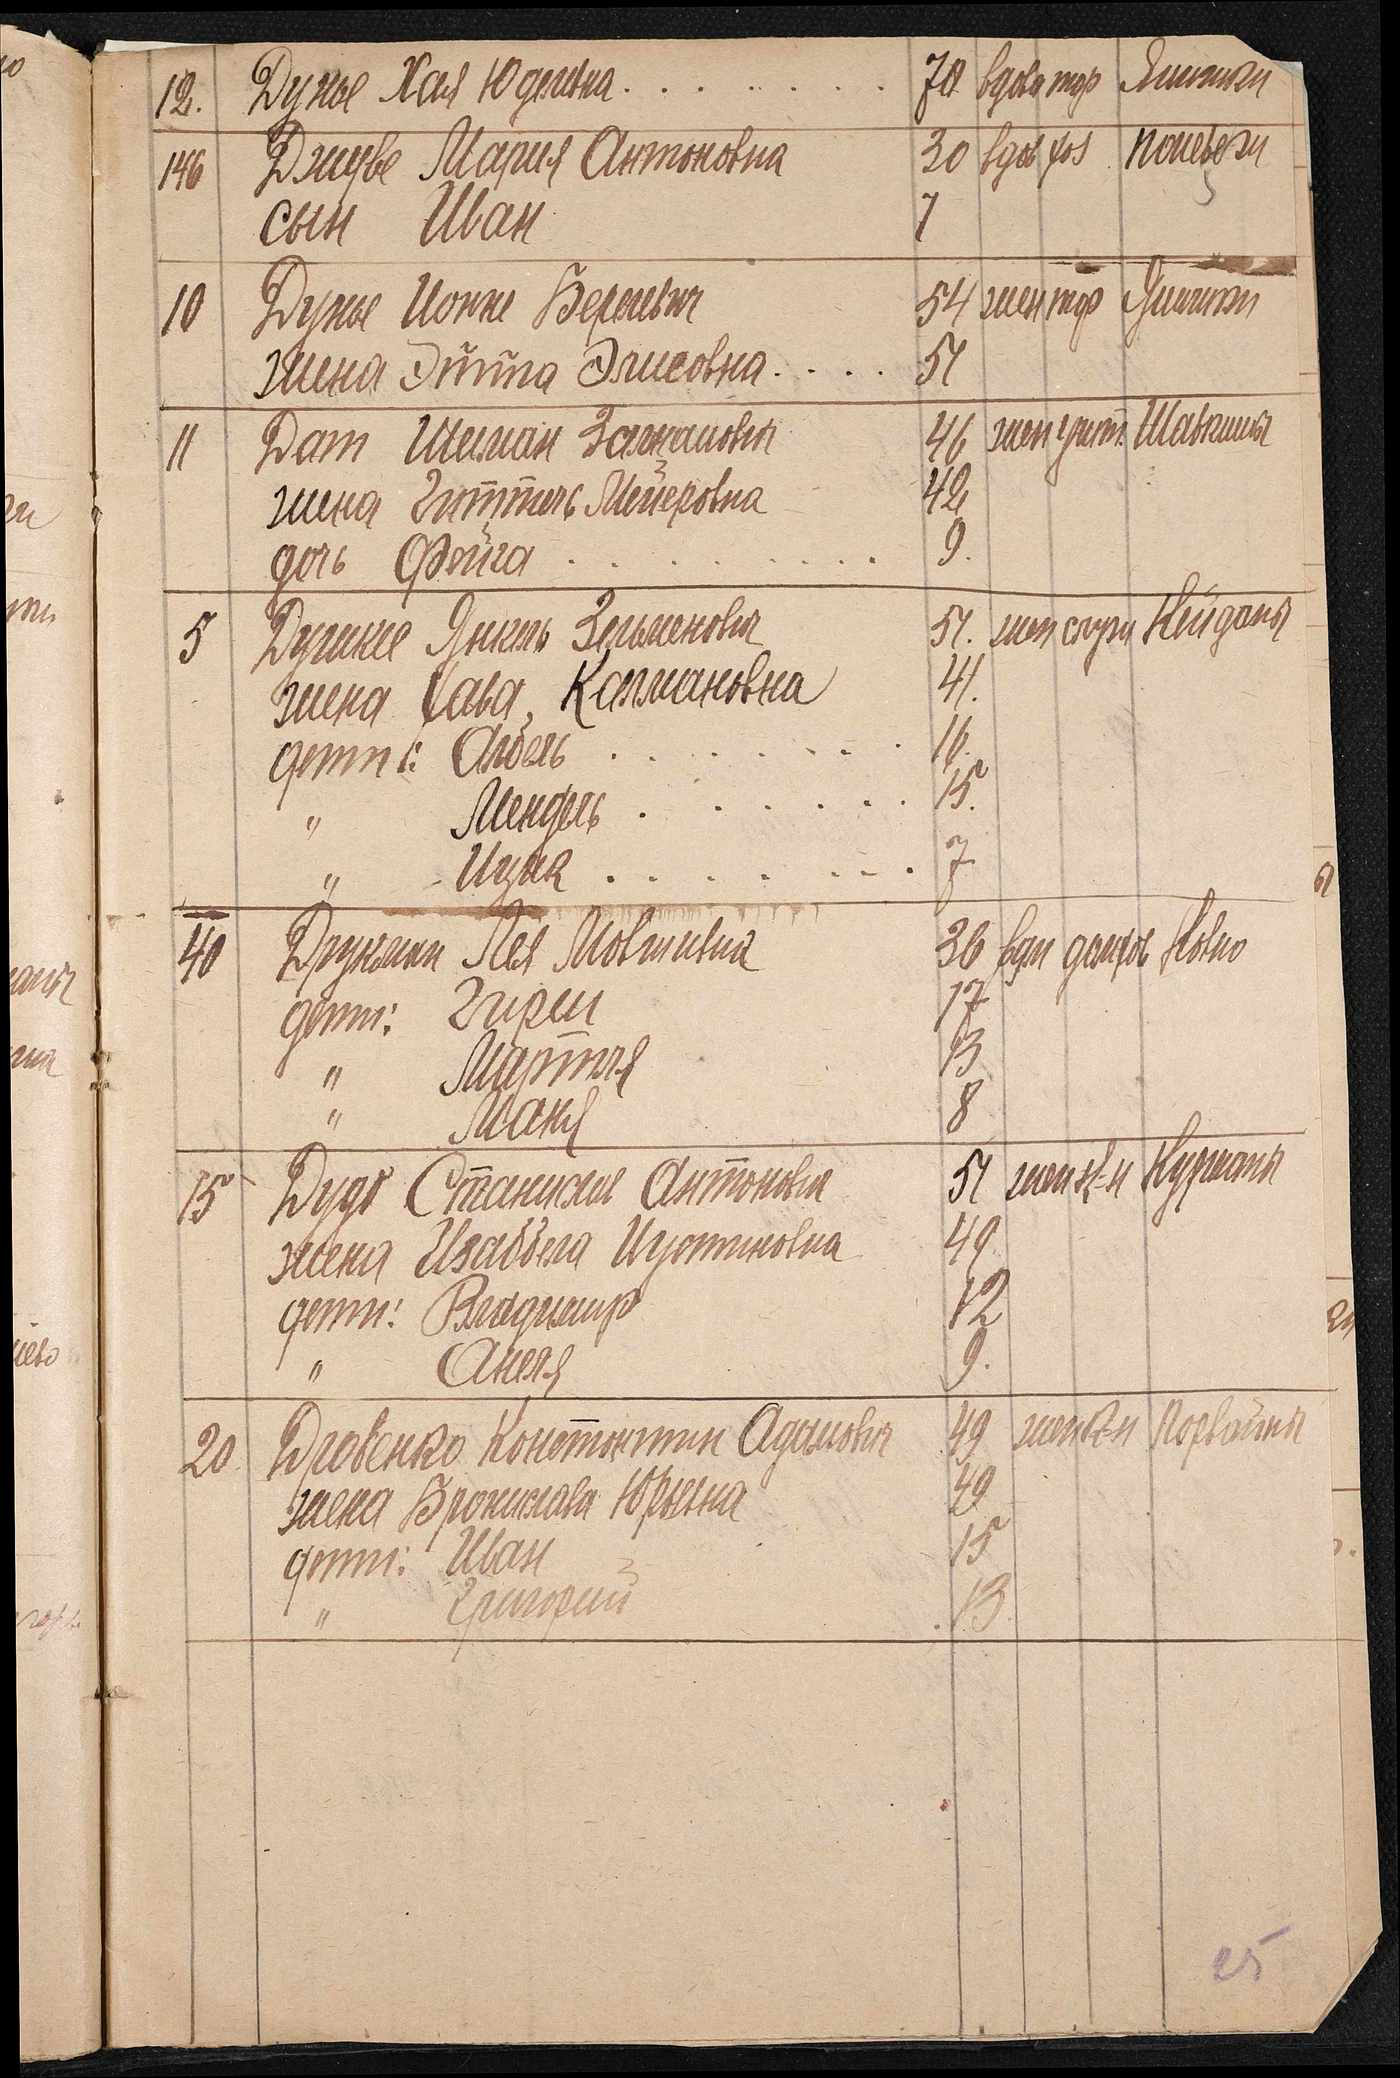 12. Дунье Хая Юделевна . . . . . . . 70 вдова тор Янишки
146 Джуве Мария Антоновна 30 вдов хоз Поневеж
сын Иван 7
10 Дунье Ионке Берелевич 54 жен тор Янишки
жена Этта Элиеовна . . . . 51
11 Дат Шеман Залмановн 46 жен учит. Шавкяны
жена Гиттель Мейеровна 42
дочь Фейга . . . . . . . . . 9.
5 Душке Янкель Зельменович 51. жен служ Кейданы
жена Хава Калмановна 41.
дети: Абель . . . . . . . 16.
" Мендель . . . . . . 15.
" Ицик . . . . . . . 7
40 Друкман Лея Мовшевна 36 вдм домхоз Ковно
дети: Гирш 17
" 13
" Маня 8
15 Дудо Станислав Антоновч 51 жен к-н Куршаны
жена Изабела Иустиновна 49
дети: Владимир 12
" Анеля 9.
20. Дровенко Константин Адамович 49 жен к-н
жена Бронислава Юрьевна 49
дети: Иван 15
" Григорий 13
25